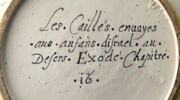 Les Cailles envoyes
aus anfans disrael au
Desers. Exode. Chapitre.
.16.